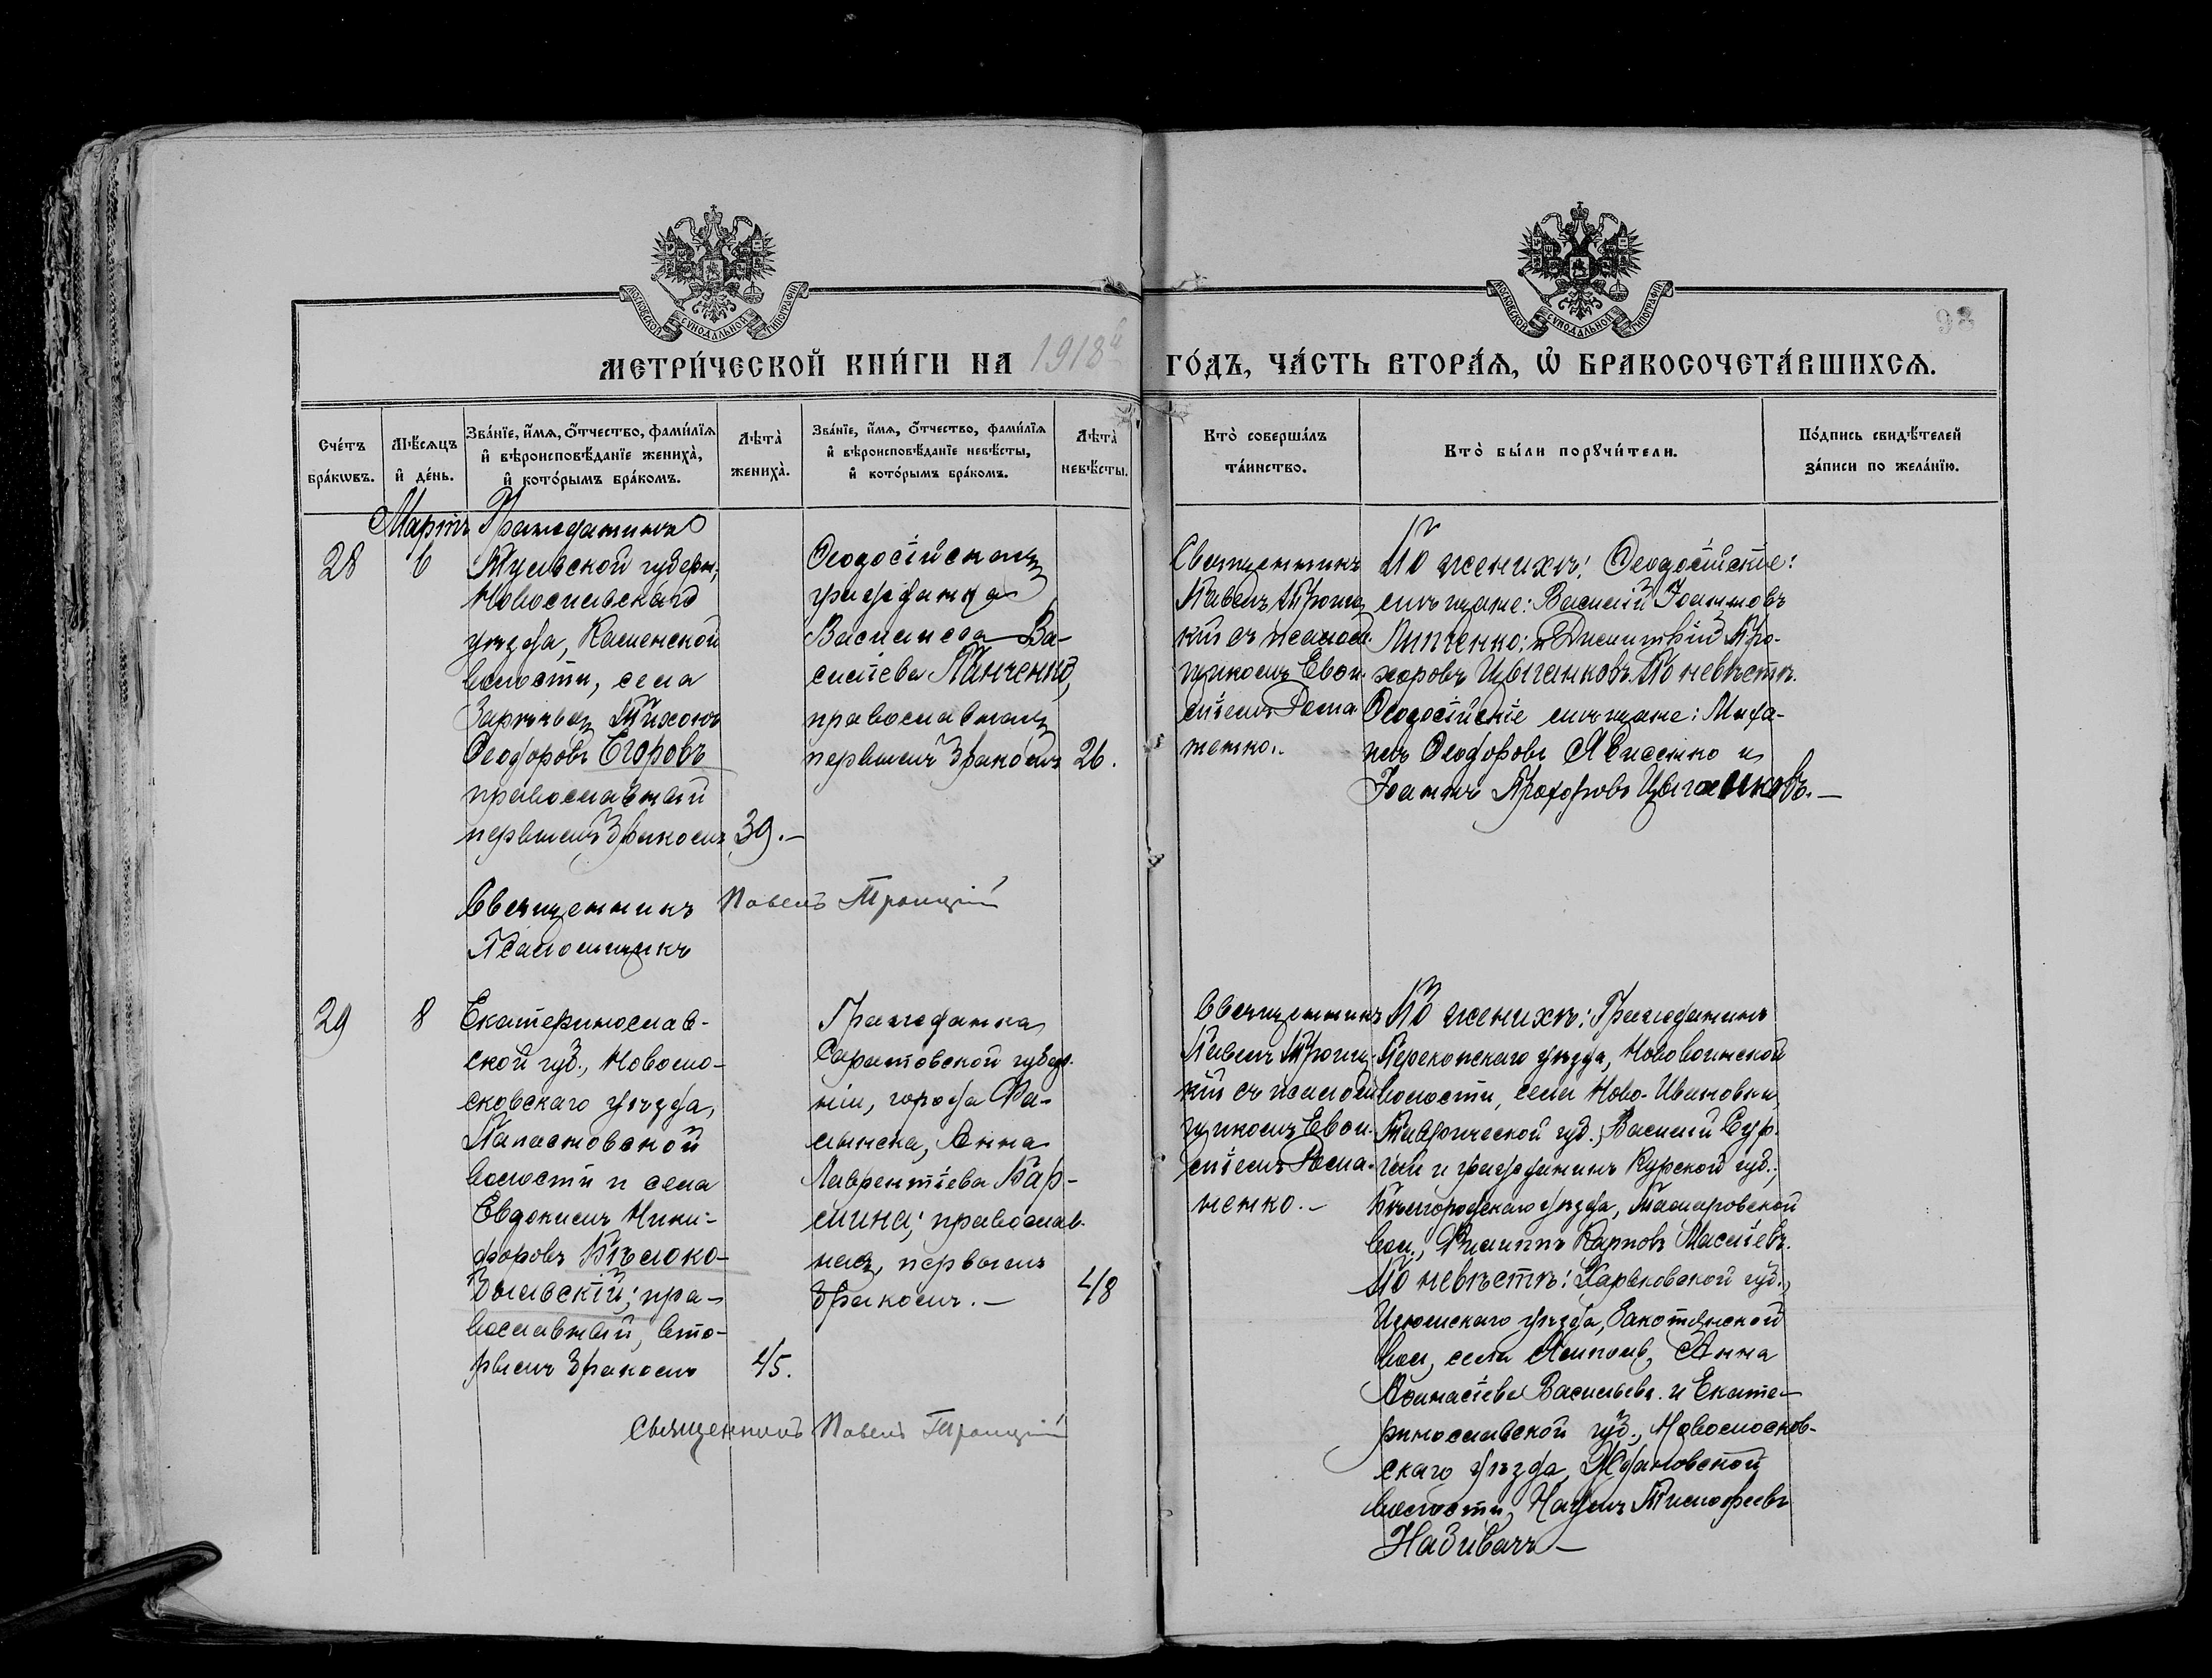 МОСКОВСКОЙ СѴНОДАЛЬНОЙ ТИПОГРАФІИ
МОСКОВСКОЙ СѴНОДАЛЬНОЙ ТИПОГРАФІИ
98
МЕТРИ́ЧЕСКОЙ КНИ́ГИ НА 1918й ГО́ДЪ, ЧА́СТЬ ВТОРА́Ѧ, Ѽ БРАКОСОЧЕТА́ВШИХСѦ.
Сче́тъ
бра́кѡвъ.
Мѣ́сяцъ
и҆ де́нь.
Зва́нїе, и҆́мѧ, ѻ҆́тчество, фами́лїѧ
и҆ вѣроисповѣ́данїе жениха̀,
и҆ кото́рымъ бра́комъ.
Лѣта̀
жениха̀.
Зва́нїе, и҆́мѧ, ѻ҆́тчество, фами́лїѧ
и҆ вѣроисповѣ́данїе невѣ́сты,
и҆ кото́рымъ бра́комъ.
Лѣта̀
невѣ́сты.
Кто̀ соверша́лъ
та́инство.
Кто̀ бы́ли порꙋчи́тели.
По́дпись свидѣ́телей
за́писи по жела́нїю.
Мартъ
28
6
Гражданинъ
Тульской губерн.,
Новосильскаго
уѣзда, Каменской
волости, села
Тихонъ
Ѳеодоровъ Егоровъ
православный
первымъ бракомъ
39.—
Ѳеодосійская
гражданка
Василиса Ва-
сильева Линченко,
православная
первымъ бракомъ
26.
Священникъ
Павелъ Троиц
кій съ псалом-
щикомъ Евои-
міемъ Рома
ненко.
По женихѣ: Ѳеодосійскіе:
мѣщане: Василій Іоанновъ
Линченко и Димитрій Про-
хоровъ Цыганковъ. По невѣстѣ.
Ѳеодосійскіе мѣщане:
Ѳеодоровъ и
Іоаннъ Прохоровъ Цыганковъ.—
Священникъ Павелъ Троицкій
Псаломщикъ
29
8
Екатеринослав-
ской губ., Новомо-
сковскаго уѣзда,
волости и села
Евдокимъ Ники-
форовъ Бѣлоко-
быльскій; пра-
вославный, вто-
рымъ бракомъ
45.
Гражданка
Саратовской губер-
ніи, города Ца-
рицына, Анна
Лаврентіева Кар-
мина; православ-
ная, первымъ
бракомъ.—
48
Священникъ
Павелъ Троиц-
кій съ псалом
щикомъ Евои-
міемъ Рома-
ненко.—
По женихѣ: Гражданинъ
Перекопскаго уѣзда,
волости, села Ново-Ивановки,
Таврической губ., Василій
и гражданинъ Курской губ.,
Бѣлгородскаго уѣзда, Томаровской
вол., Филиппъ Карповъ
По невѣстѣ: Харьковской губ.,
Изюмскаго уѣзда,
вол., села Анна
Аѳанасіева Васильева и Екате-
ринославской губ., Новомосков-
скаго уѣзда, Ждановской
волости, Наумъ Тимофеевъ
Священникъ Павелъ Троицкій